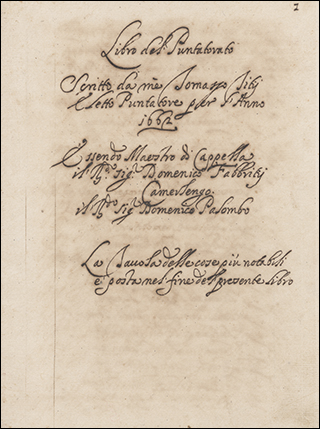 1
Libro del Puntatorato
Scritto da me Tomasso Titij
Eletto Puntatore per l'Anno
1662
Essendo Maestro di Cappella
il sig. Domenico Fabbritij
Camerlengo
il sig. Domenico Palombo
La Tavola delle cose più notabili
è posta nel fine del presente libro